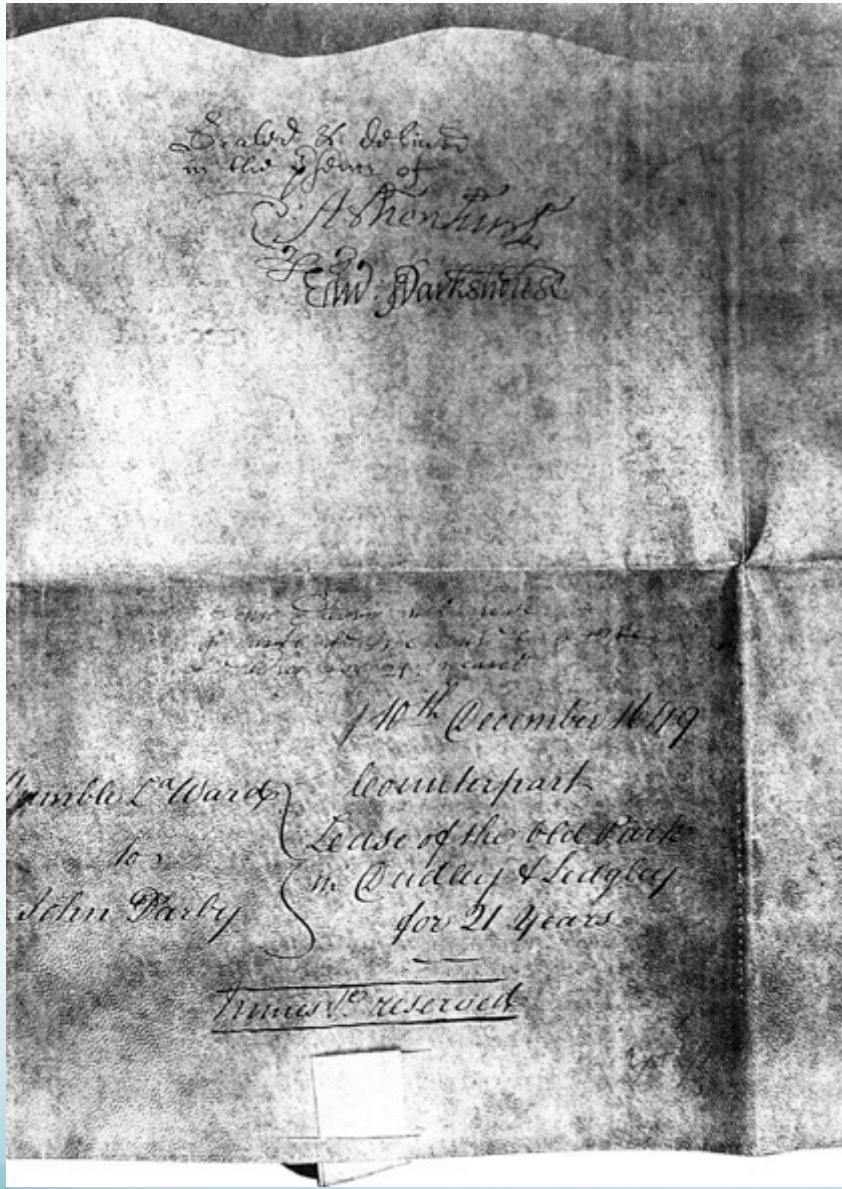 Sealed & delivered
in the p'sence of
C: Ashenhurst
Edw. Parkshouse
10th December 1649
Humble Ld Ward
to
John Darby
Counterpart
Lease of the Old Park
in Dudley & Sedgley
for 21 Years
Mines &c reserved